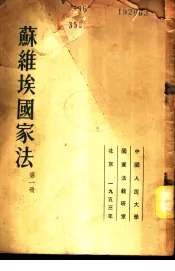 192063
蘇維埃國家法
第一冊
中國人民大學
國家法教研室
北京 一九五三年